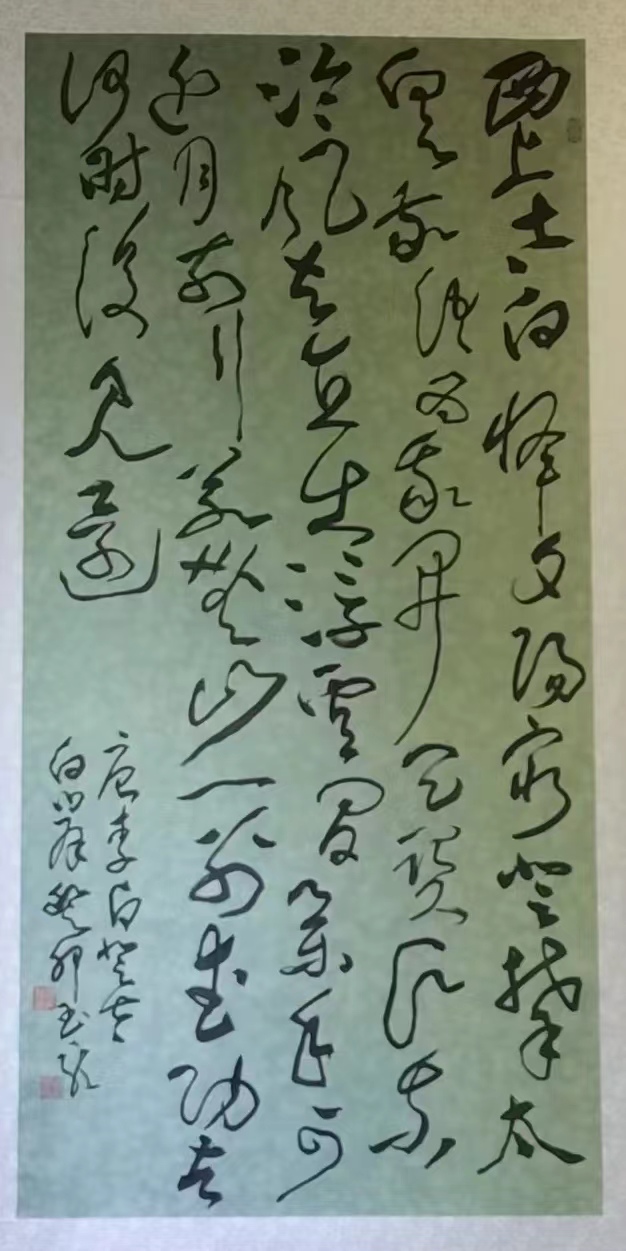 西上太白峰夕陽窮登攀太
白與我語為我開天關願乘
泠風去直出浮雲間舉手可
近月前行若無山一別武功去
何時復見還
唐李白登太
白峰癸卯玉